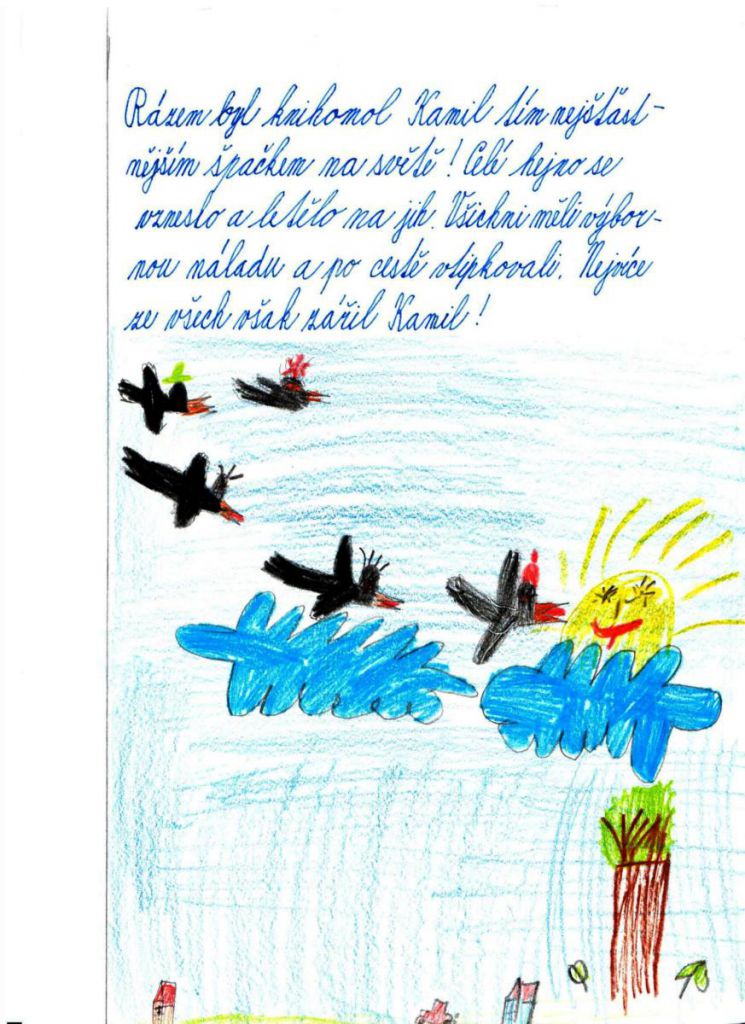 Rázem byl knihomol Kamil tím nejšťast-
nějším špačkem na světě! Celé hejno se
vzneslo a letělo na jih. Všichni měli výbor-
nou náladu a po cestě vtipkovali. Nejvíce
ze všech však zářil Kamil!